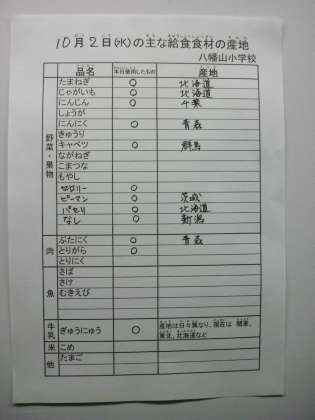 10月2日(水)の主な給食食材の産地
八幡山小学校
品名 本日使用したもの 産地
野菜・果物
たまねぎ ○ 北海道
じゃがいも ○ 北海道
にんじん ○ 千葉
しょうが
にんにく ○ 青森
きゅうり
キャベツ ○ 群馬
ながねぎ
こまつな
もやし
セロリー ○
ピーマン ○ 茨城
パセリ ○ 北海道
なし ○ 新潟
肉
ぶたにく ○ 青森
とりがら ○
とりにく
魚
さば
さけ
むきえび
牛乳 ぎゅうにゅう ○ 産地は日々異なり、現在は 関東、
東北、北海道など
米 こめ
他 たまご